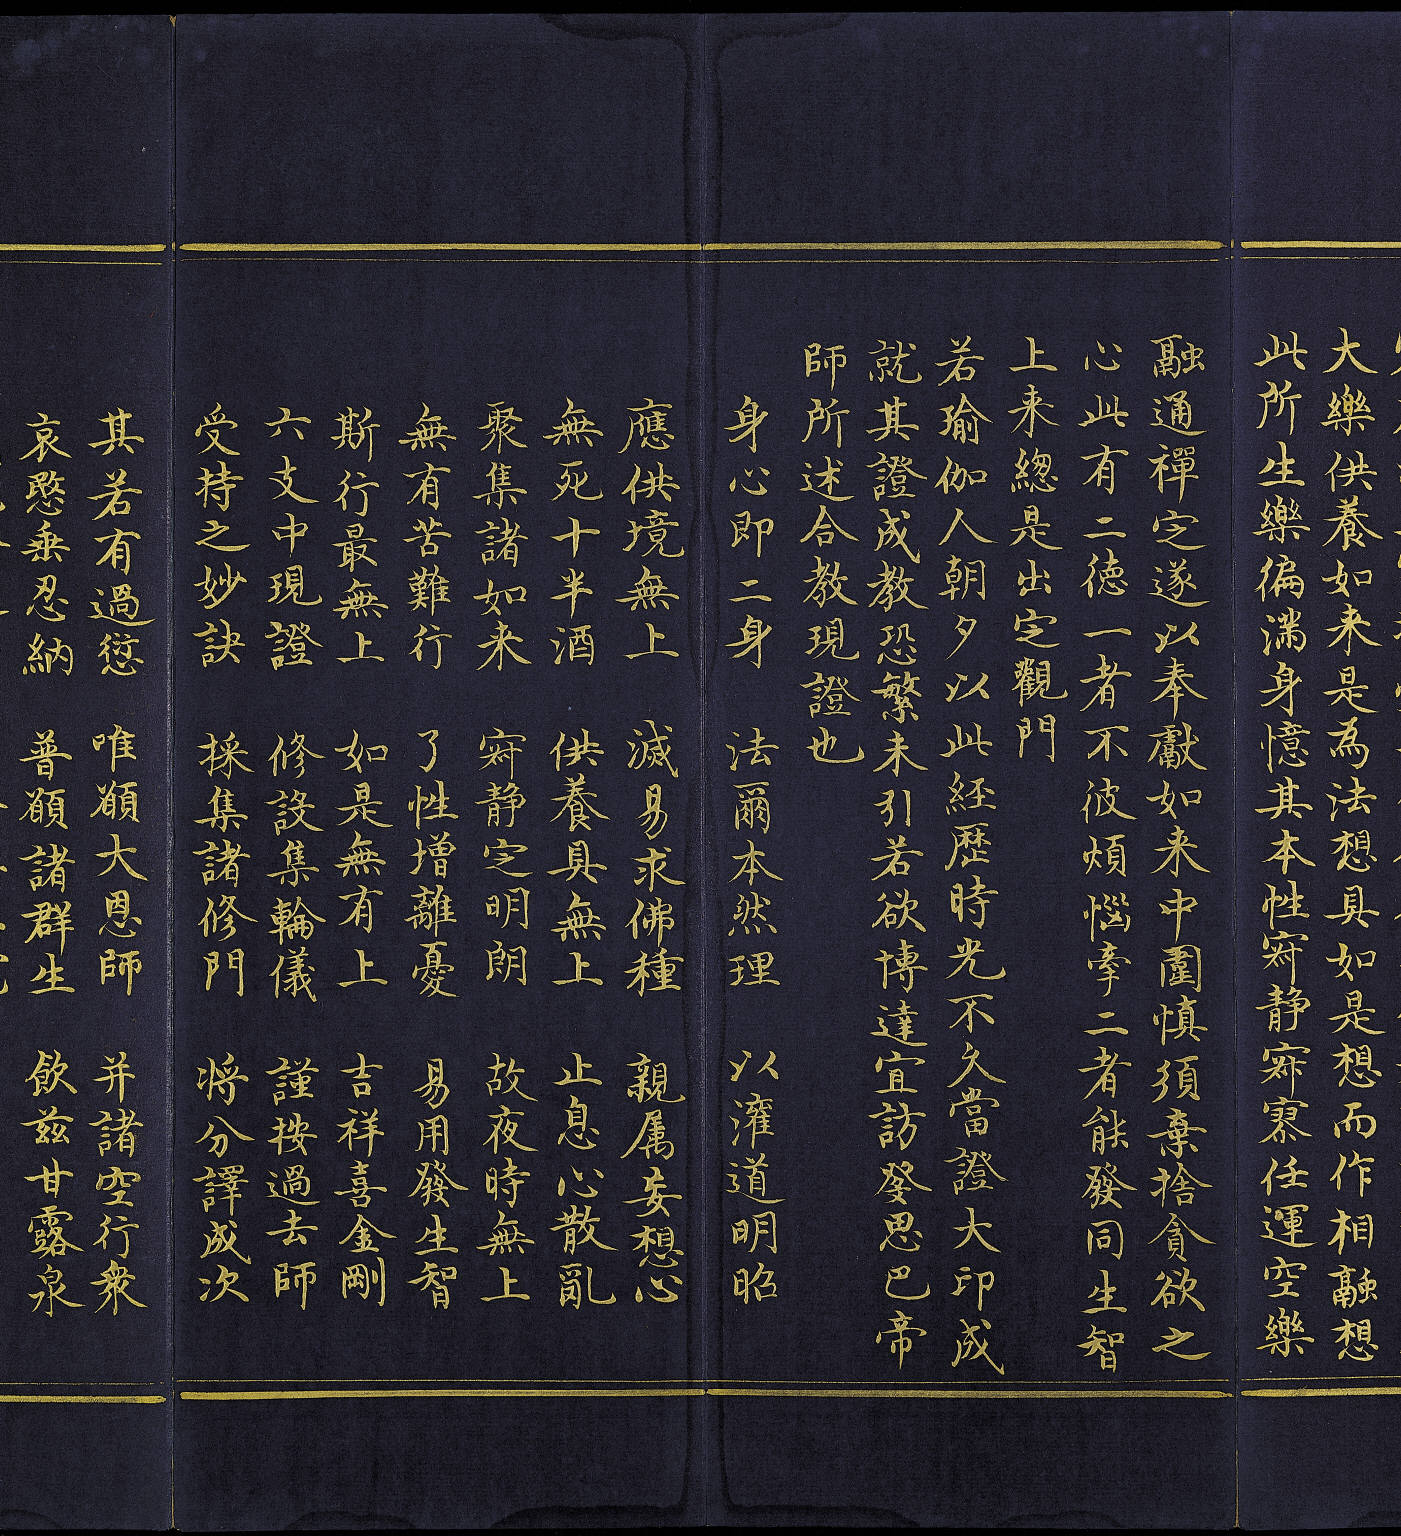 大樂供養如来是為法想具如是想而作相融想
此所生樂徧滿身憶其本性㝛静㝛寥任運空樂
融通禪定遂以奉獻如来中圍慎須棄捨貪欲之
心此有二德一者不彼煩惱牽二者能發同生智
上来總是出定觀門
若瑜伽人朝夕以此経歴時光不久當證大印成
就其證成教恐繁未引若欲博達宜訪發思巴帝
師所述合教現證也
身心即二身　法爾本然理　以濯道明昭
應供境無上　滅易求佛種　親属妄想心
無死十半酒　供養具無上　止息心散亂
聚集諸如来　㝛静定明朗　故夜時無上
無有苦難行　了性增離憂　易用發生智
斯行最無上　如是無有上　吉祥喜金剛
六支中現證　修設集輪儀　謹按過去師
受持之妙訣　採集諸修門　將分譯成次
其若有過愆　唯願大恩師　并諸空行衆
哀愍垂忍納　普願諸群生　飲兹甘露泉